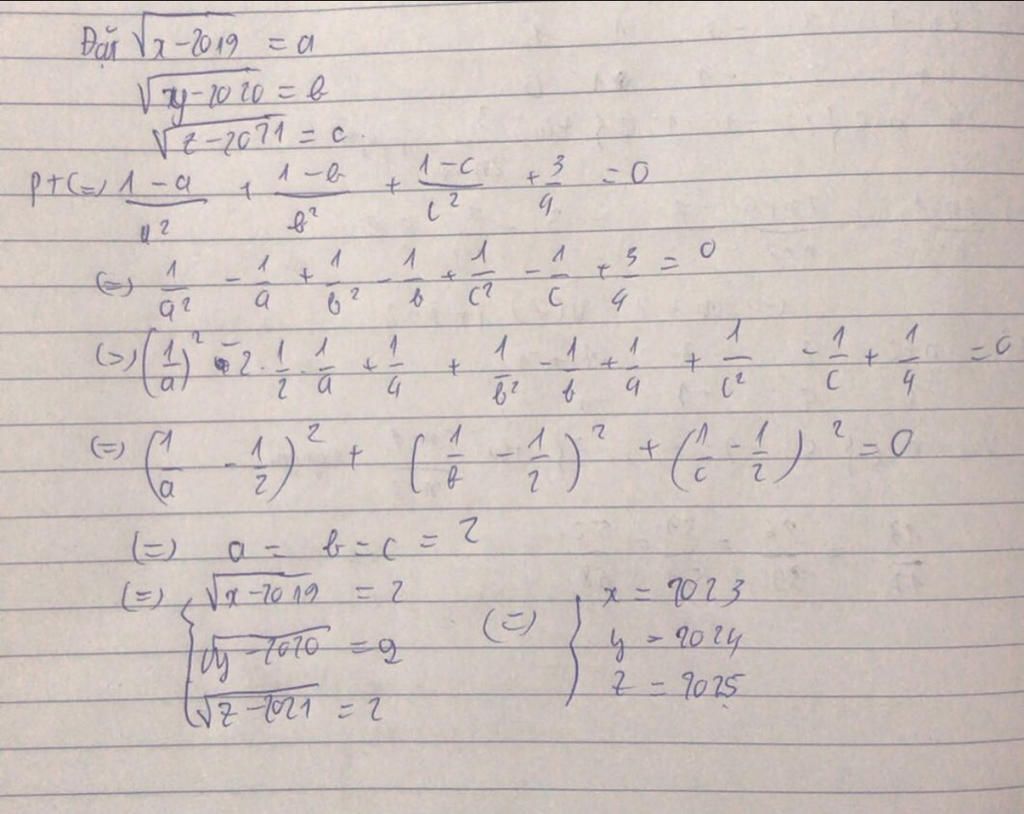 Đặt √(x-2019) = a
√(xy-2020) = b
√(z-2021) = c.
pt (=) (1-a)/a² + (1-b)/b² + (1-c)/c² + 3/4 = 0
(=) 1/a² - 1/a + 1/b² - 1/b + 1/c² - 1/c + 3/4 = 0
(=) (1/a)² - 2 . 1/2 . 1/a + 1/4 + 1/b² - 1/b + 1/4 + 1/c² - 1/c + 1/4 = 0
(=) (1/a - 1/2)² + (1/b - 1/2)² + (1/c - 1/2)² = 0
(=) a = b = c = 2
(=) { √(x-2019) = 2 (=) } x = 2023
√(y-2020) = 2 y = 2024
√(z-2021) = 2 z = 2025